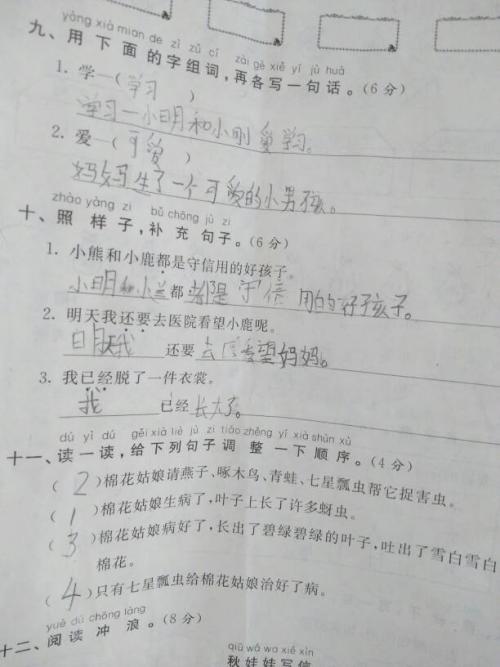 yòng xià mian de zì zǔ cí zài gè xiě yí jù huà
九、用下面的字组词,再各写一句话。(6分)
1. 学—(学习)
学习一小明和小刚爱学习。
2. 爱—(可爱)
妈妈生了一个可爱的小男孩。
zhào yàng zi bǔ chōng jù zi
十、照样子,补充句子。(6分)
1. 小熊和小鹿都是守信用的好孩子。
小明和小兰都都是守信用的好孩子。
2. 明天我还要去医院看望小鹿呢。
明天我还要去医看望妈妈。
3. 我已经脱了一件衣裳。
我已经长大了。
dú yi dú gěi xià liè jù zi tiáo zhěng yí xià shùn xù
十一、读一读,给下列句子调整一下顺序。(4分)
(2)棉花姑娘请燕子、啄木鸟、青蛙、七星瓢虫帮它捉害虫。
(1)棉花姑娘生病了,叶子上长了许多蚜虫。
(3)棉花姑娘病好了,长出了碧绿碧绿的叶子,吐出了雪白雪白
棉花。
(4)只有七星瓢虫给棉花姑娘治好了病。
yuè dú chōng làng
十二、阅读冲浪。(8分)
qiū wá wa xiě xìn
秋娃娃写信